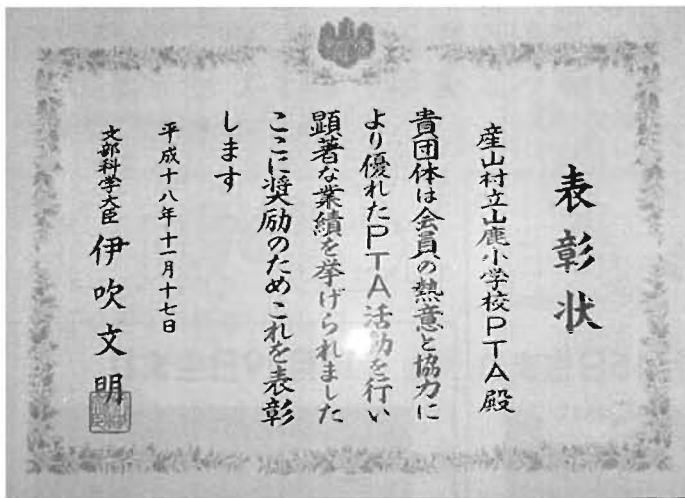 表彰状
産山村立山鹿小学校PTA殿
貴団体は会員の熱意と協力に
より優れたPTA活動を行い
顕著な業績を挙げられました
ここに奨励のためこれを表彰
します
平成十八年十一月十七日
文部科学大臣 伊吹文明